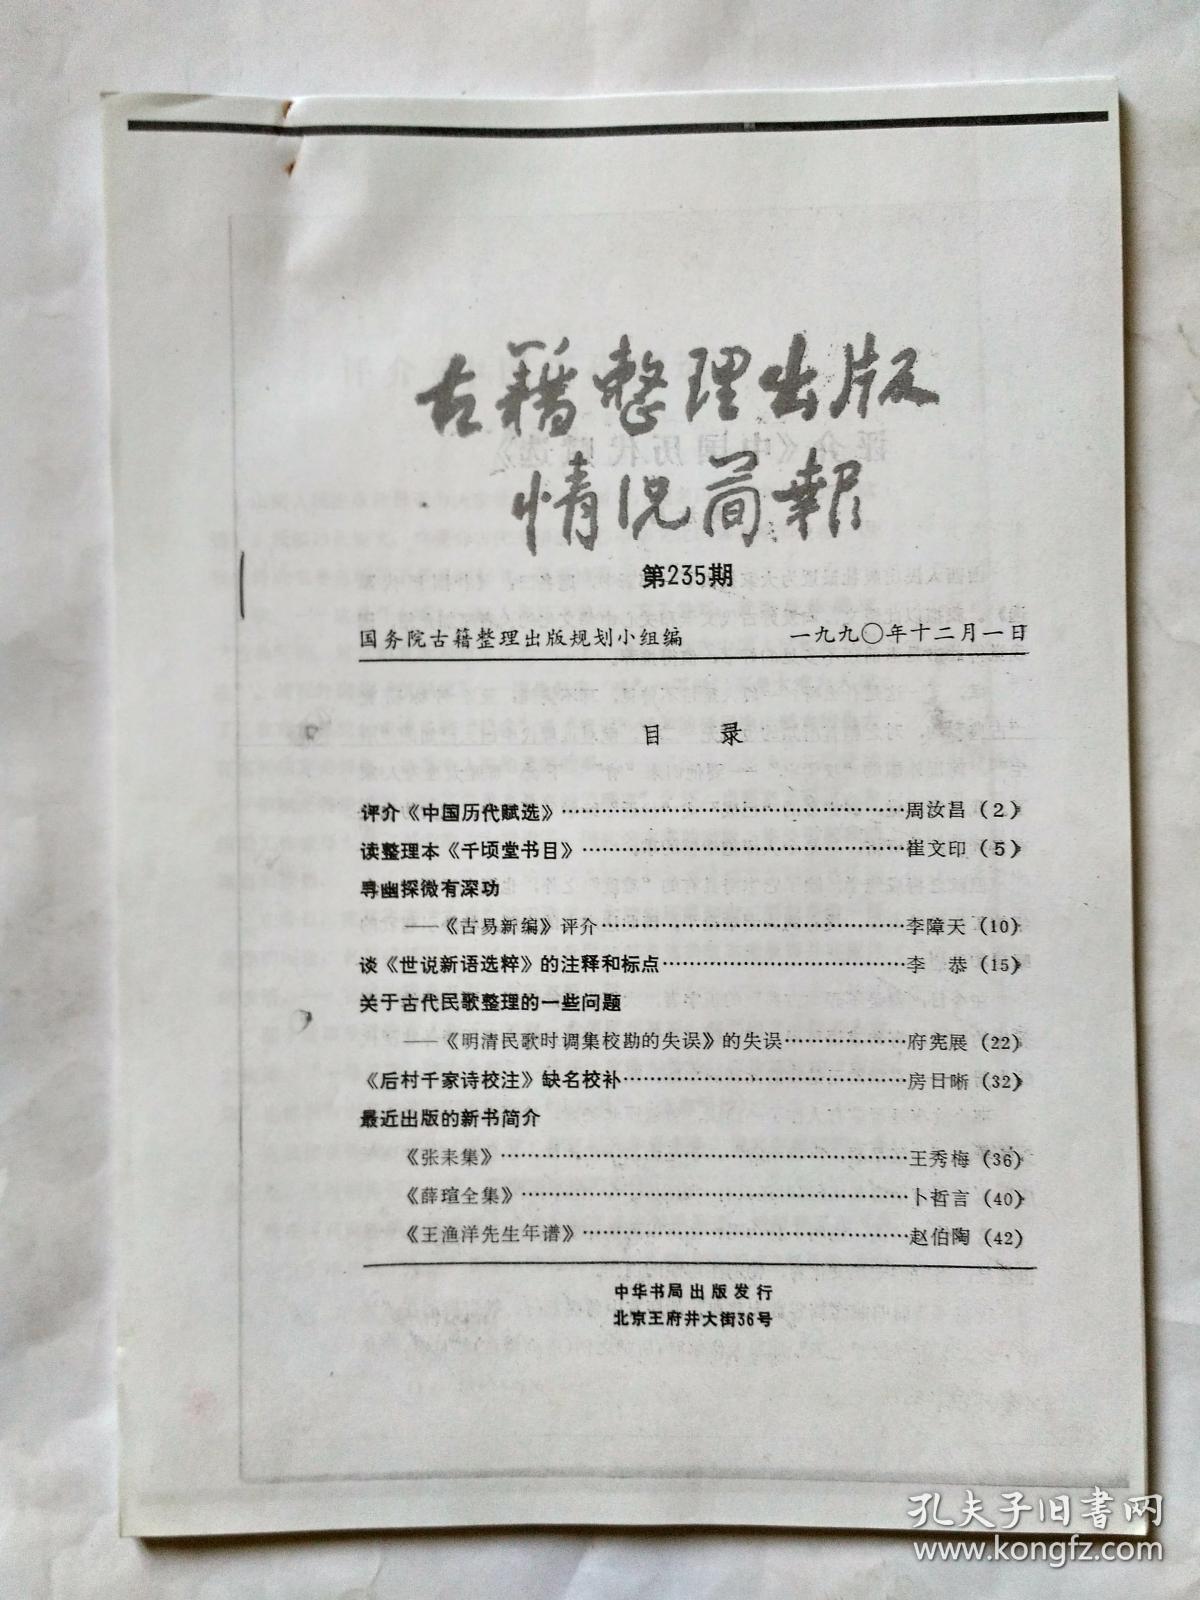 古籍整理出版
情况简报
第235期
国务院古籍整理出版规划小组编 一九九〇年十二月一日
目 录
评介《中国历代赋选》……周汝昌（2）
读整理本《千顷堂书目》……崔文印（5）
寻幽探微有深功
——《古易新编》评介……李障天（10）
谈《世说新语选粹》的注释和标点……李 恭（15）
关于古代民歌整理的一些问题
——《明清民歌时调集校勘的失误》的失误……府宪展（22）
《后村千家诗校注》缺名校补……房日晰（32）
最近出版的新书简介
《张耒集》……王秀梅（36）
《薛瑄全集》……卜哲言（40）
《王渔洋先生年谱》……赵伯陶（42）
中华书局出版发行
北京王府井大街36号
孔夫子旧书网
www.kongfz.com